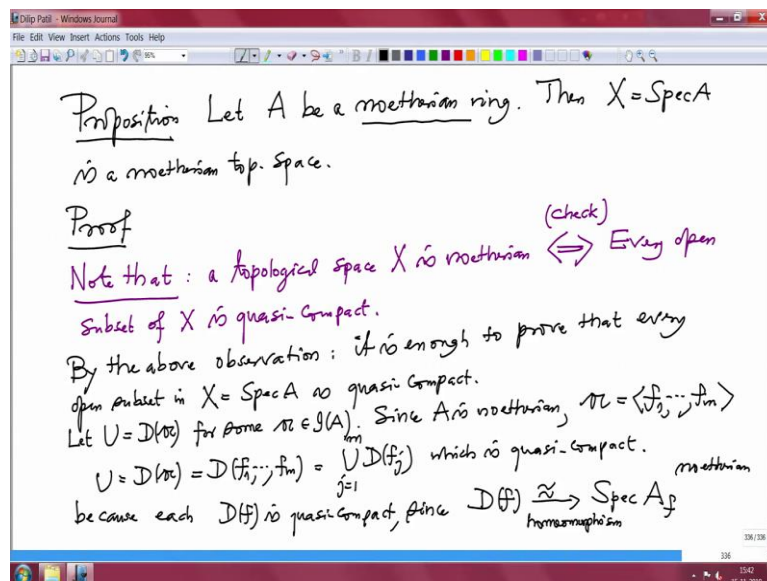 Dilip Patil - Windows Journal
File Edit View Insert Actions Tools Help
Proposition Let A be a noetherian ring. Then X = Spec A
is a noetherian top. space.
Proof
(check)
Note that : a topological space X is noetherian ⟺ Every open
subset of X is quasi-compact.
By the above observation : it is enough to prove that every
open subset in X = Spec A is quasi compact.
Let U = D(𝔞) for some 𝔞 ∈ I(A). Since A is noetherian, 𝔞 = ⟨f₁, ..., fₘ⟩
U = D(𝔞) = D(f₁, ..., fₘ) = ⋃_{j=1}^{m} D(fⱼ) which is quasi-compact.
because each D(f) is quasi-compact, since D(f) ≈→ Spec A_f noetherian
homeomorphism
336/336
336
15:42